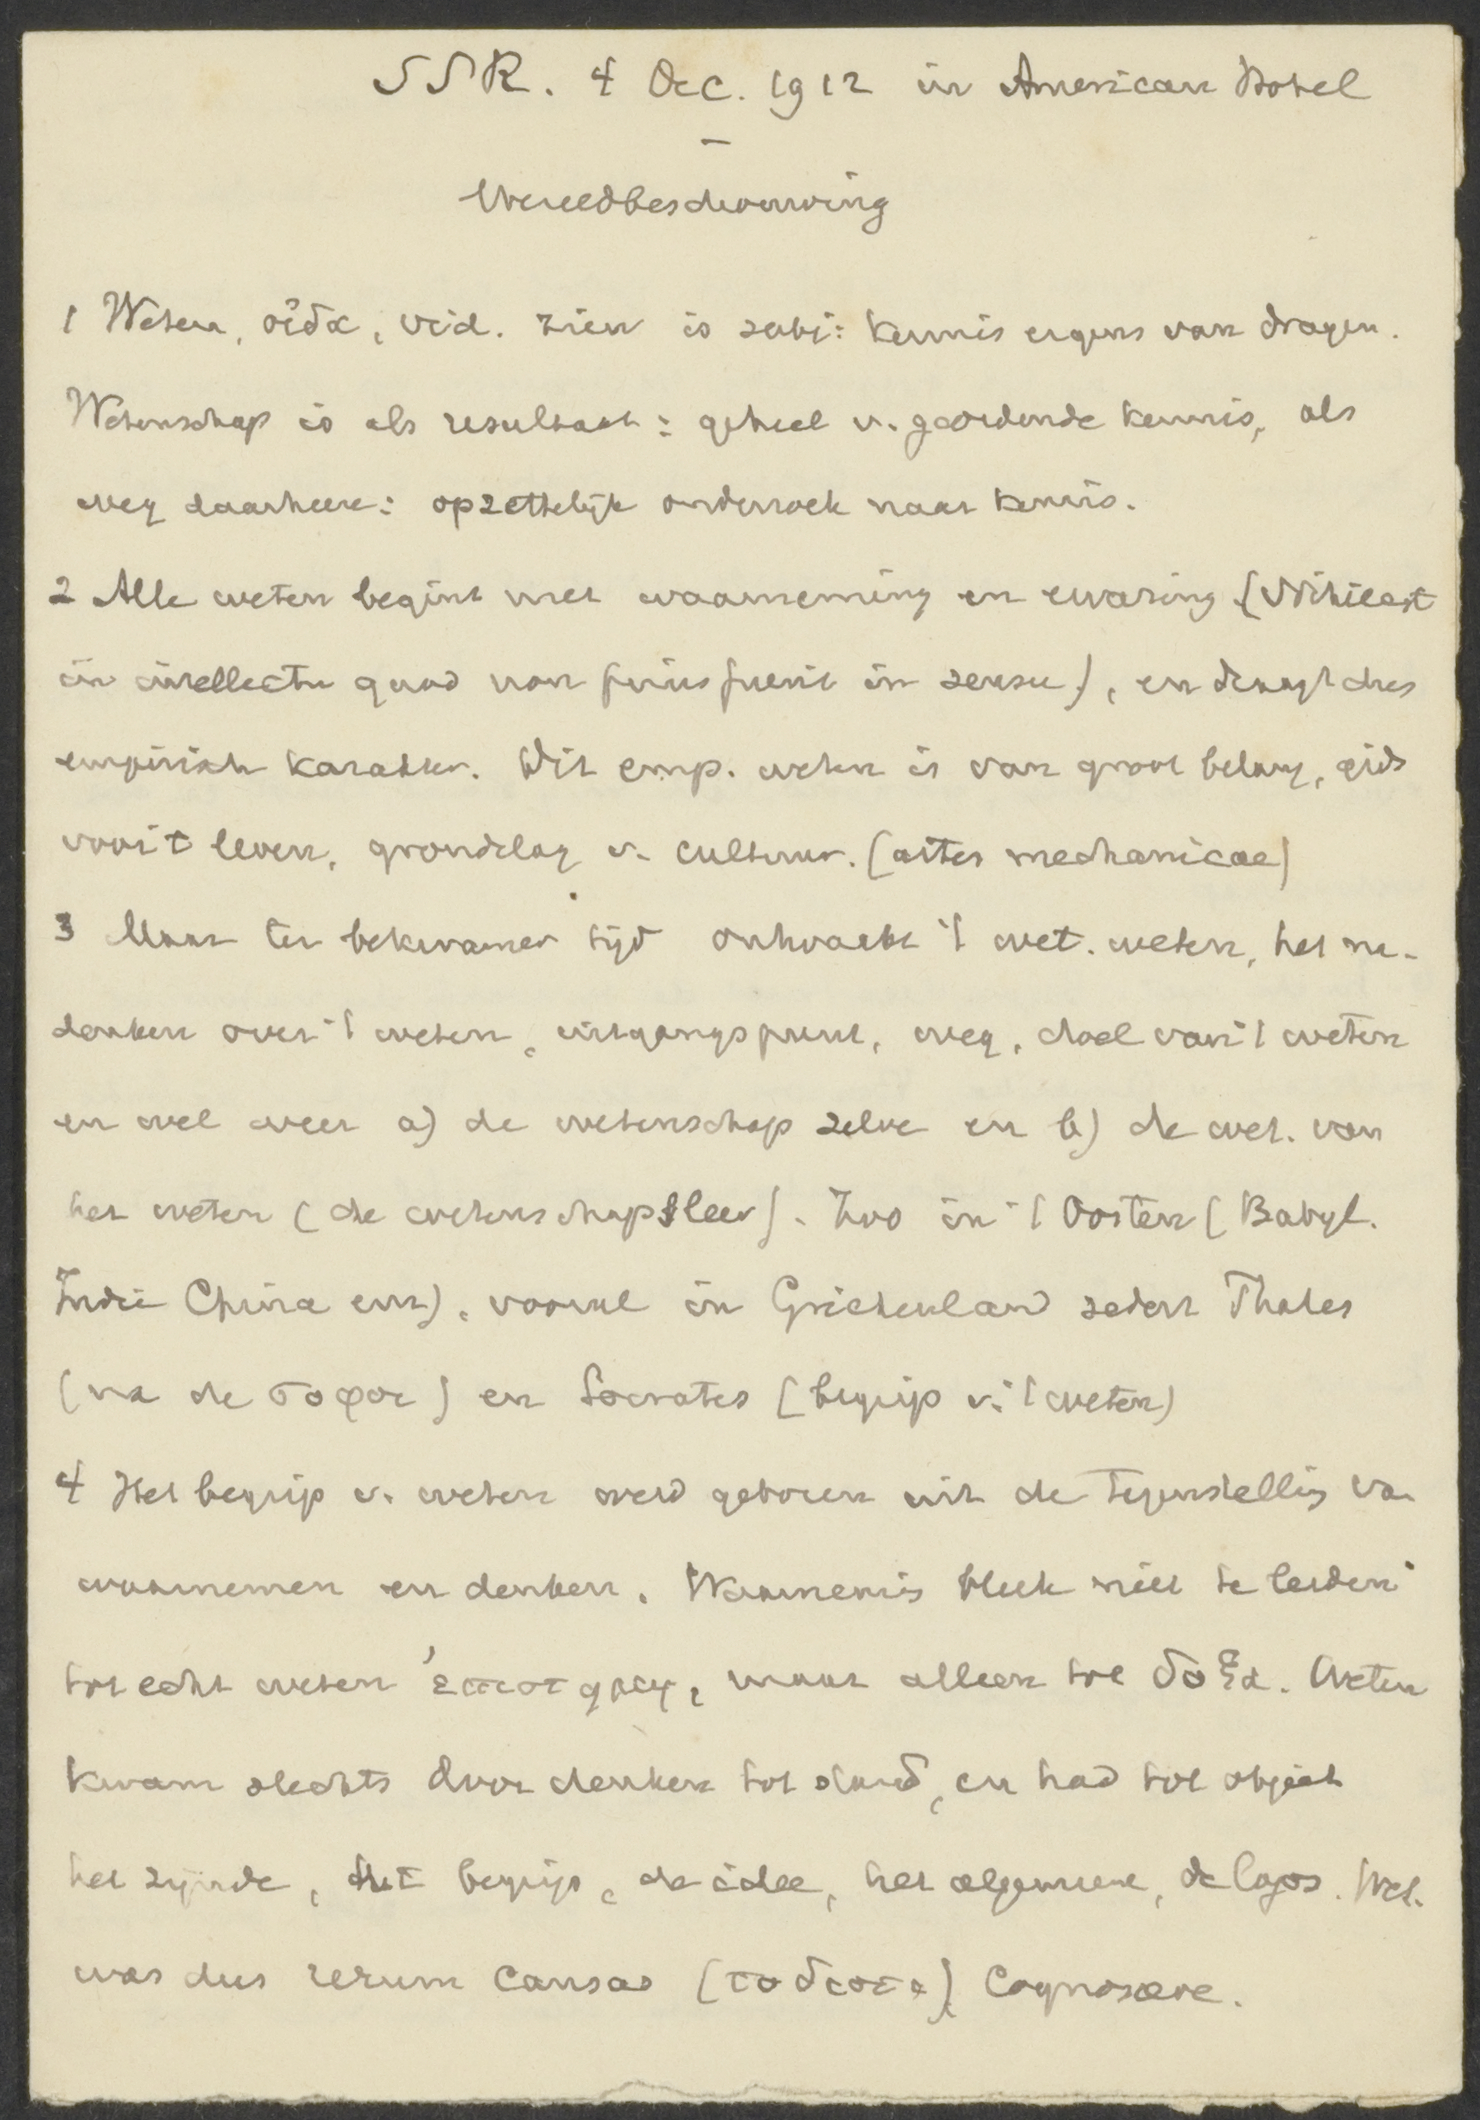 SSR. 4 Dec. 1912 in American Hotel
–
Wereldbeschouwing
1 Weten, οἶδα, vid. zien is subj: kennis ergens van dragen.
Wetenschap is als resultaat: geheel v. geordende kennis, als
weg daarheen: opzettelijk onderzoek naar kennis.
2 Alle weten begint met waarneming en ervaring (Nihil est
in intellectu quod non prius fuerit in sensu), en draagt dus
empirisch karakter. Dit emp. weten is van groot belang, gids
voor 't leven, grondslag v. cultuur. (artes mechanicae)
3 Maar ter bekwamer tijd ontwaakt 't wet. weten, het na-
denken over 't weten, uitgangspunt, weg, doel van 't weten
en wel weer a) de wetenschap zelve en b) de wet. van
het weten (de wetenschapsleer). Zoo in 't Oosten (Babyl.
Indië China enz), vooral in Griekenland sedert Thales
(na de σοφοι) en Socrates (begrip v. 't weten)
4 Het begrip v. weten werd geboren uit de tegenstelling van
waarnemen en denken. Waarneming bleek niet te leiden
tot echt weten ἐπιστημη, maar alleen tot δοξα. Weten
kwam slechts door denken tot stand, en had tot object
het zijnde, het begrip, de idee, het algemeene, de logos. Wet.
was dus rerum causas (το διοτι) cognoscere.